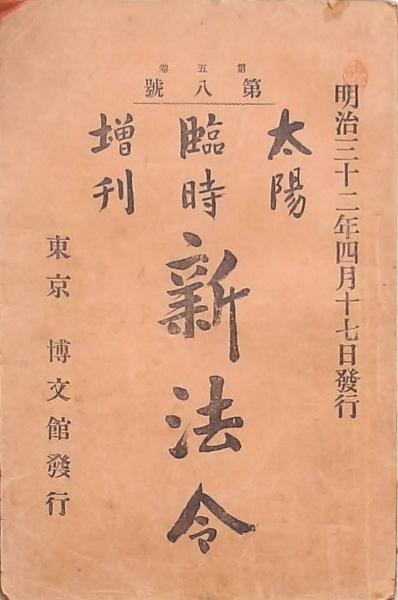 明治三十二年四月十七日發行
第五卷
第八號
太陽
臨時
增刊
新法令
東京 博文館發行